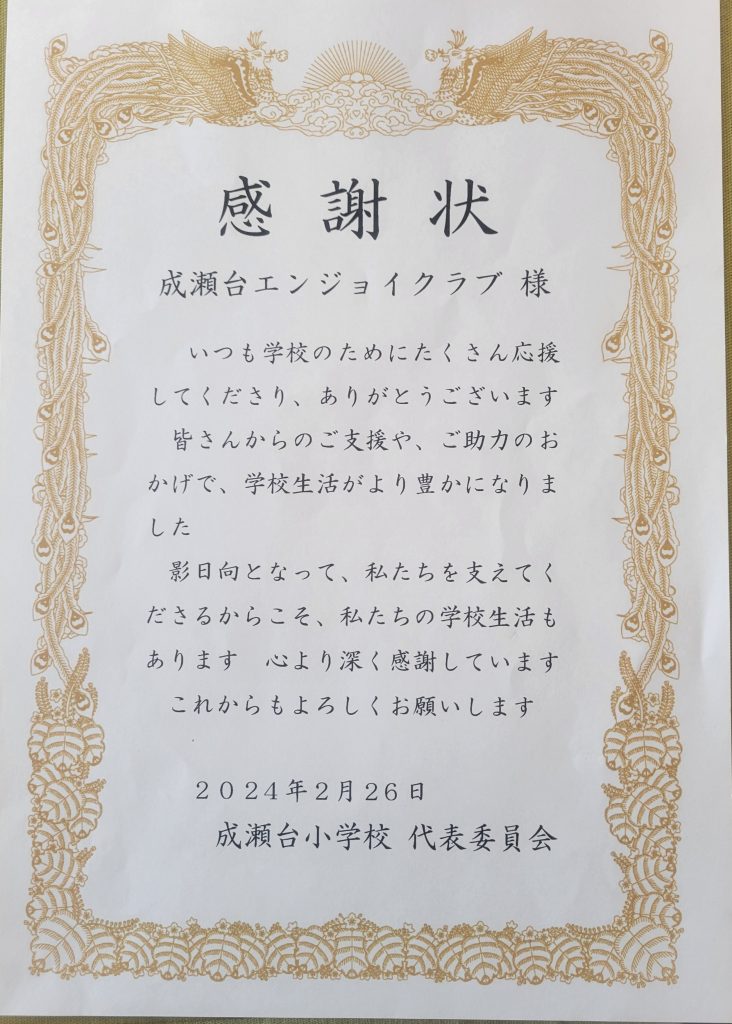 感謝状
成瀬台エンジョイクラブ 様
いつも学校のためにたくさん応援
してくださり、ありがとうございます
皆さんからのご支援や、ご助力のお
かげで、学校生活がより豊かになりま
した
影日向となって、私たちを支えてく
ださるからこそ、私たちの学校生活も
あります　心より深く感謝しています
これからもよろしくお願いします
２０２４年２月２６日
成瀬台小学校 代表委員会